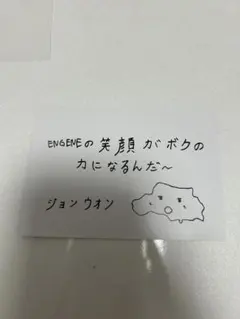 ENGENEの笑顔がボクの
力になるんだ〜
ジョンウォン